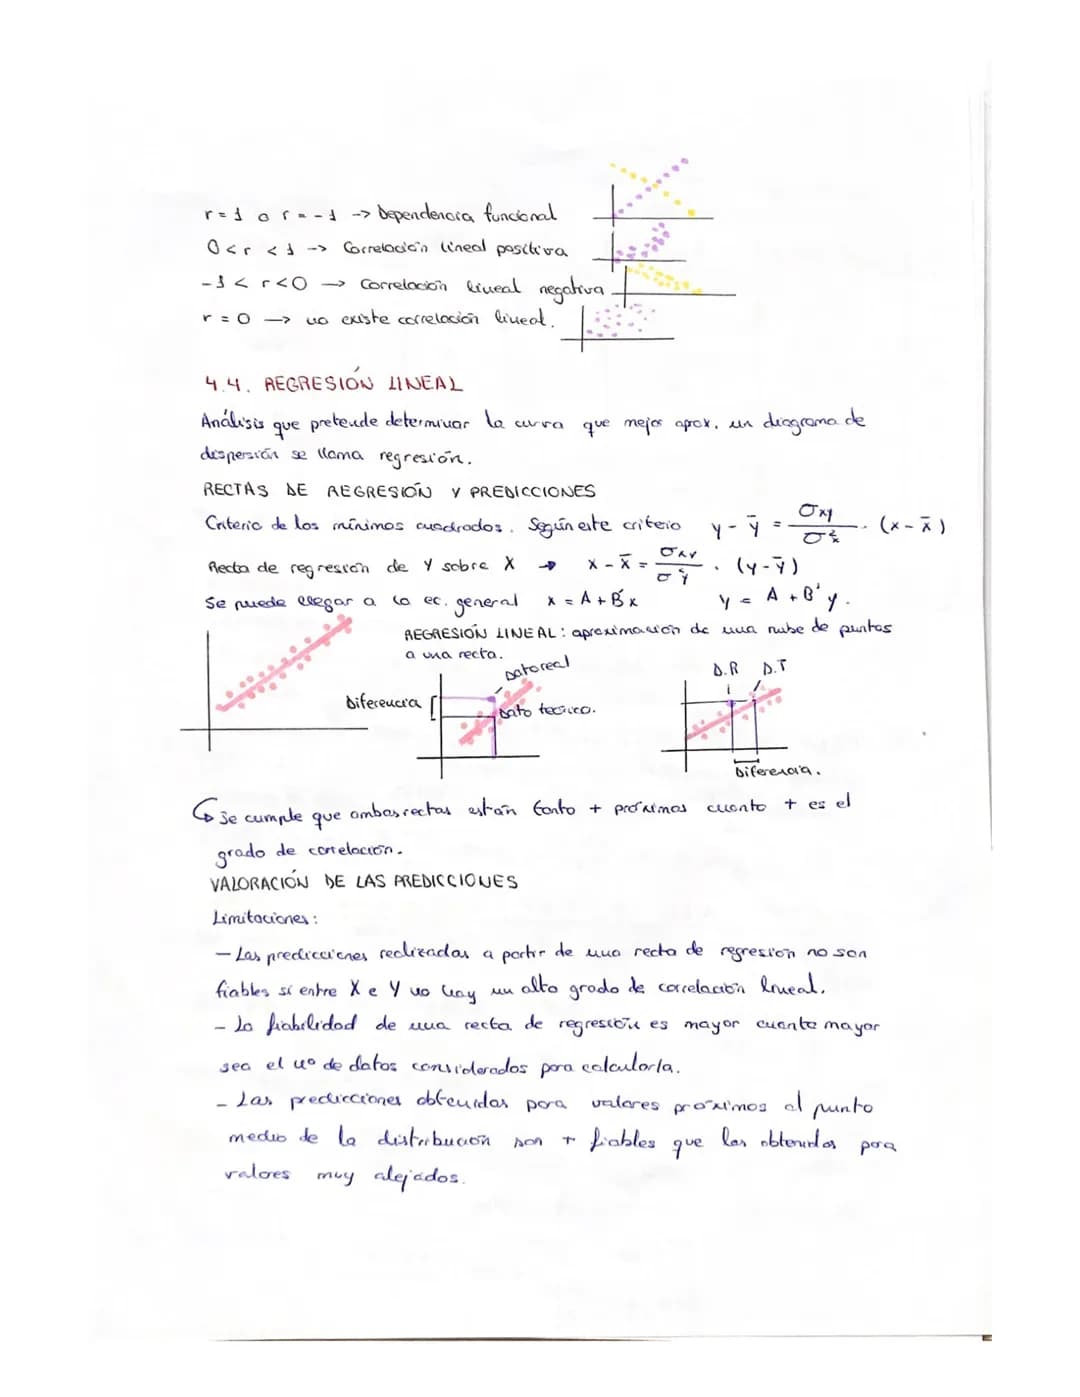 r = 1 o r = -1 -> Dependencia funcional
0 < r < 1 -> Correlación lineal positiva
-1 < r < 0 -> Correlación lineal negativa
r = 0 -> no existe correlación lineal.
4.4. REGRESIÓN LINEAL
Análisis que pretende determinar la curva que mejor aprox. un diagrama de
despersión se llama regresión.
RECTAS DE REGRESIÓN Y PREDICCIONES
Criterio de los mínimos cuadrados. Según este criterio y - ȳ = σxy / σ²x · (x - x̄)
Recta de regresión de Y sobre X → x - x̄ = σxy / σ²y · (y - ȳ)
Se puede llegar a la ec. general x = A + B'x y = A + B'y.
REGRESIÓN LINEAL: aproximación de una nube de puntos
a una recta.
Dato real
D.R D.T
Diferencia
Dato teórico.
Diferencia.
↳ Se cumple que ambas rectas están tanto + próximas cuanto + es el
grado de correlación.
VALORACIÓN DE LAS PREDICCIONES
Limitaciones:
- Las predicciones realizadas a partir de una recta de regresión no son
fiables si entre X e Y no hay un alto grado de correlación lineal.
- La fiabilidad de una recta de regresión es mayor cuanto mayor
sea el nº de datos considerados para calcularla.
- Las predicciones obtenidas para valores próximos al punto
medio de la distribución son + fiables que las obtenidas para
valores muy alejados.